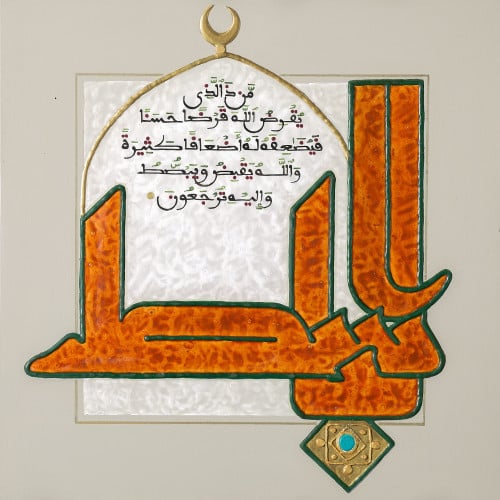 مَّن ذَا ٱلَّذِى
يُقْرِضُ ٱللَّهَ قَرْضًا حَسَنًا
فَيُضَٰعِفَهُ لَهُ أَضْعَافًا كَثِيرَةً
وَٱللَّهُ يَقْبِضُ وَيَبْسُطُ
وَإِلَيْهِ تُرْجَعُونَ